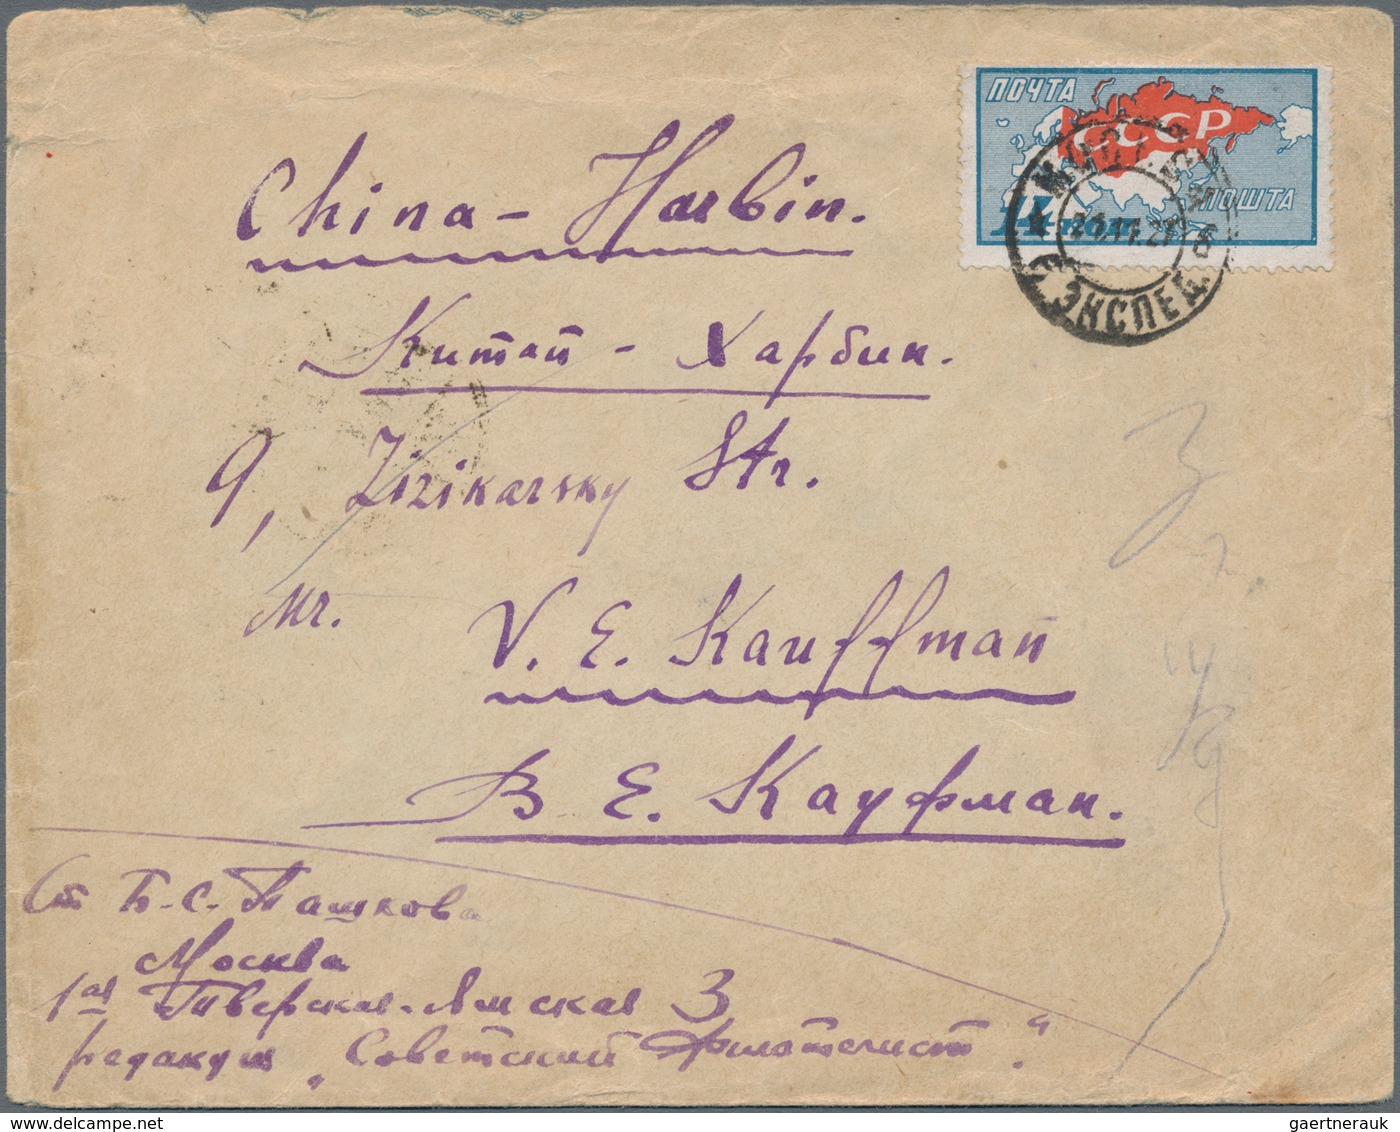 ПОЧТА
СССР
ПОШТА
14 коп
ЭКСПЕД.
China - Harbin.
Китай - Харбин.
9, Zizikarsky Str.
Mr.
V. E. Kauffman
В. Е. Кауфман.
От Б. С. Пашкова
Москва
1ая Тверская-Ямская 3
редакция „Советский Филателист".
gaertnerauk